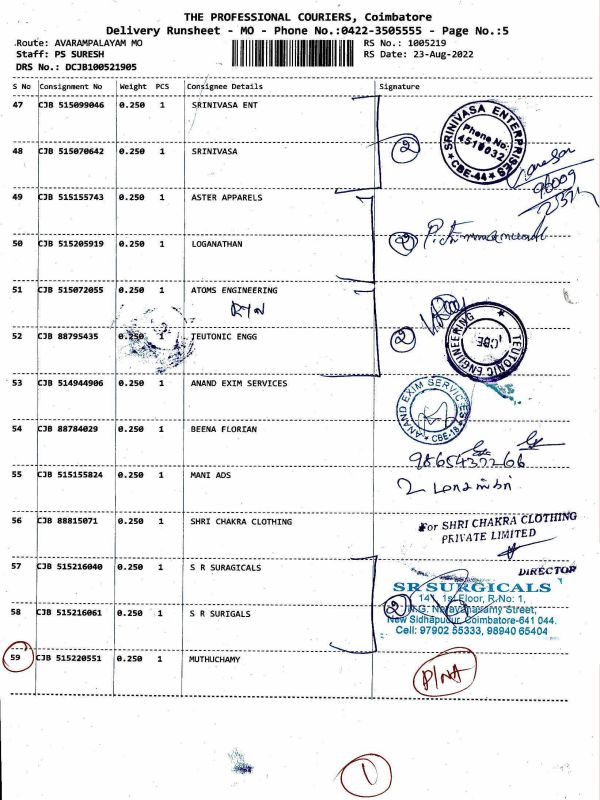 THE PROFESSIONAL COURIERS, Coimbatore
Delivery Runsheet - MO - Phone No.:0422-3505555 - Page No.:5
Route: AVARAMPALAYAM MO RS No.: 1005219
Staff: PS SURESH RS Date: 23-Aug-2022
DRS No.: DCJB100521905
S No Consignment No Weight PCS Consignee Details Signature
47 CJB 515099046 0.250 1 SRINIVASA ENT
SRINIVASA ENTERPRISES
Phone No:
4519032
CBE-44
48 CJB 515070642 0.250 1 SRINIVASA 2
49 CJB 515155743 0.250 1 ASTER APPARELS
50 CJB 515205919 0.250 1 LOGANATHAN 2
51 CJB 515072055 0.250 1 ATOMS ENGINEERING
52 CJB 88795435 0.250 1 TEUTONIC ENGG 2
TEUTONIC ENGINEERING
CBE
53 CJB 514944906 0.250 1 ANAND EXIM SERVICES
ANAND EXIM SERVICES
CBE-18
54 CJB 88784029 0.250 1 BEENA FLORIAN
9865437266
55 CJB 515155824 0.250 1 MANI ADS
56 CJB 88815071 0.250 1 SHRI CHAKRA CLOTHING
For SHRI CHAKRA CLOTHING
PRIVATE LIMITED
DIRECTOR
57 CJB 515216040 0.250 1 S R SURAGICALS
SR SURGICALS
14, 1st Floor, R.No: 1,
N.G. Narayanasamy Street,
New Sidhapudur, Coimbatore-641 044.
Cell: 97902 55333, 98940 65404
58 CJB 515216061 0.250 1 S R SURIGALS 2
59 CJB 515220551 0.250 1 MUTHUCHAMY
P/NA
1